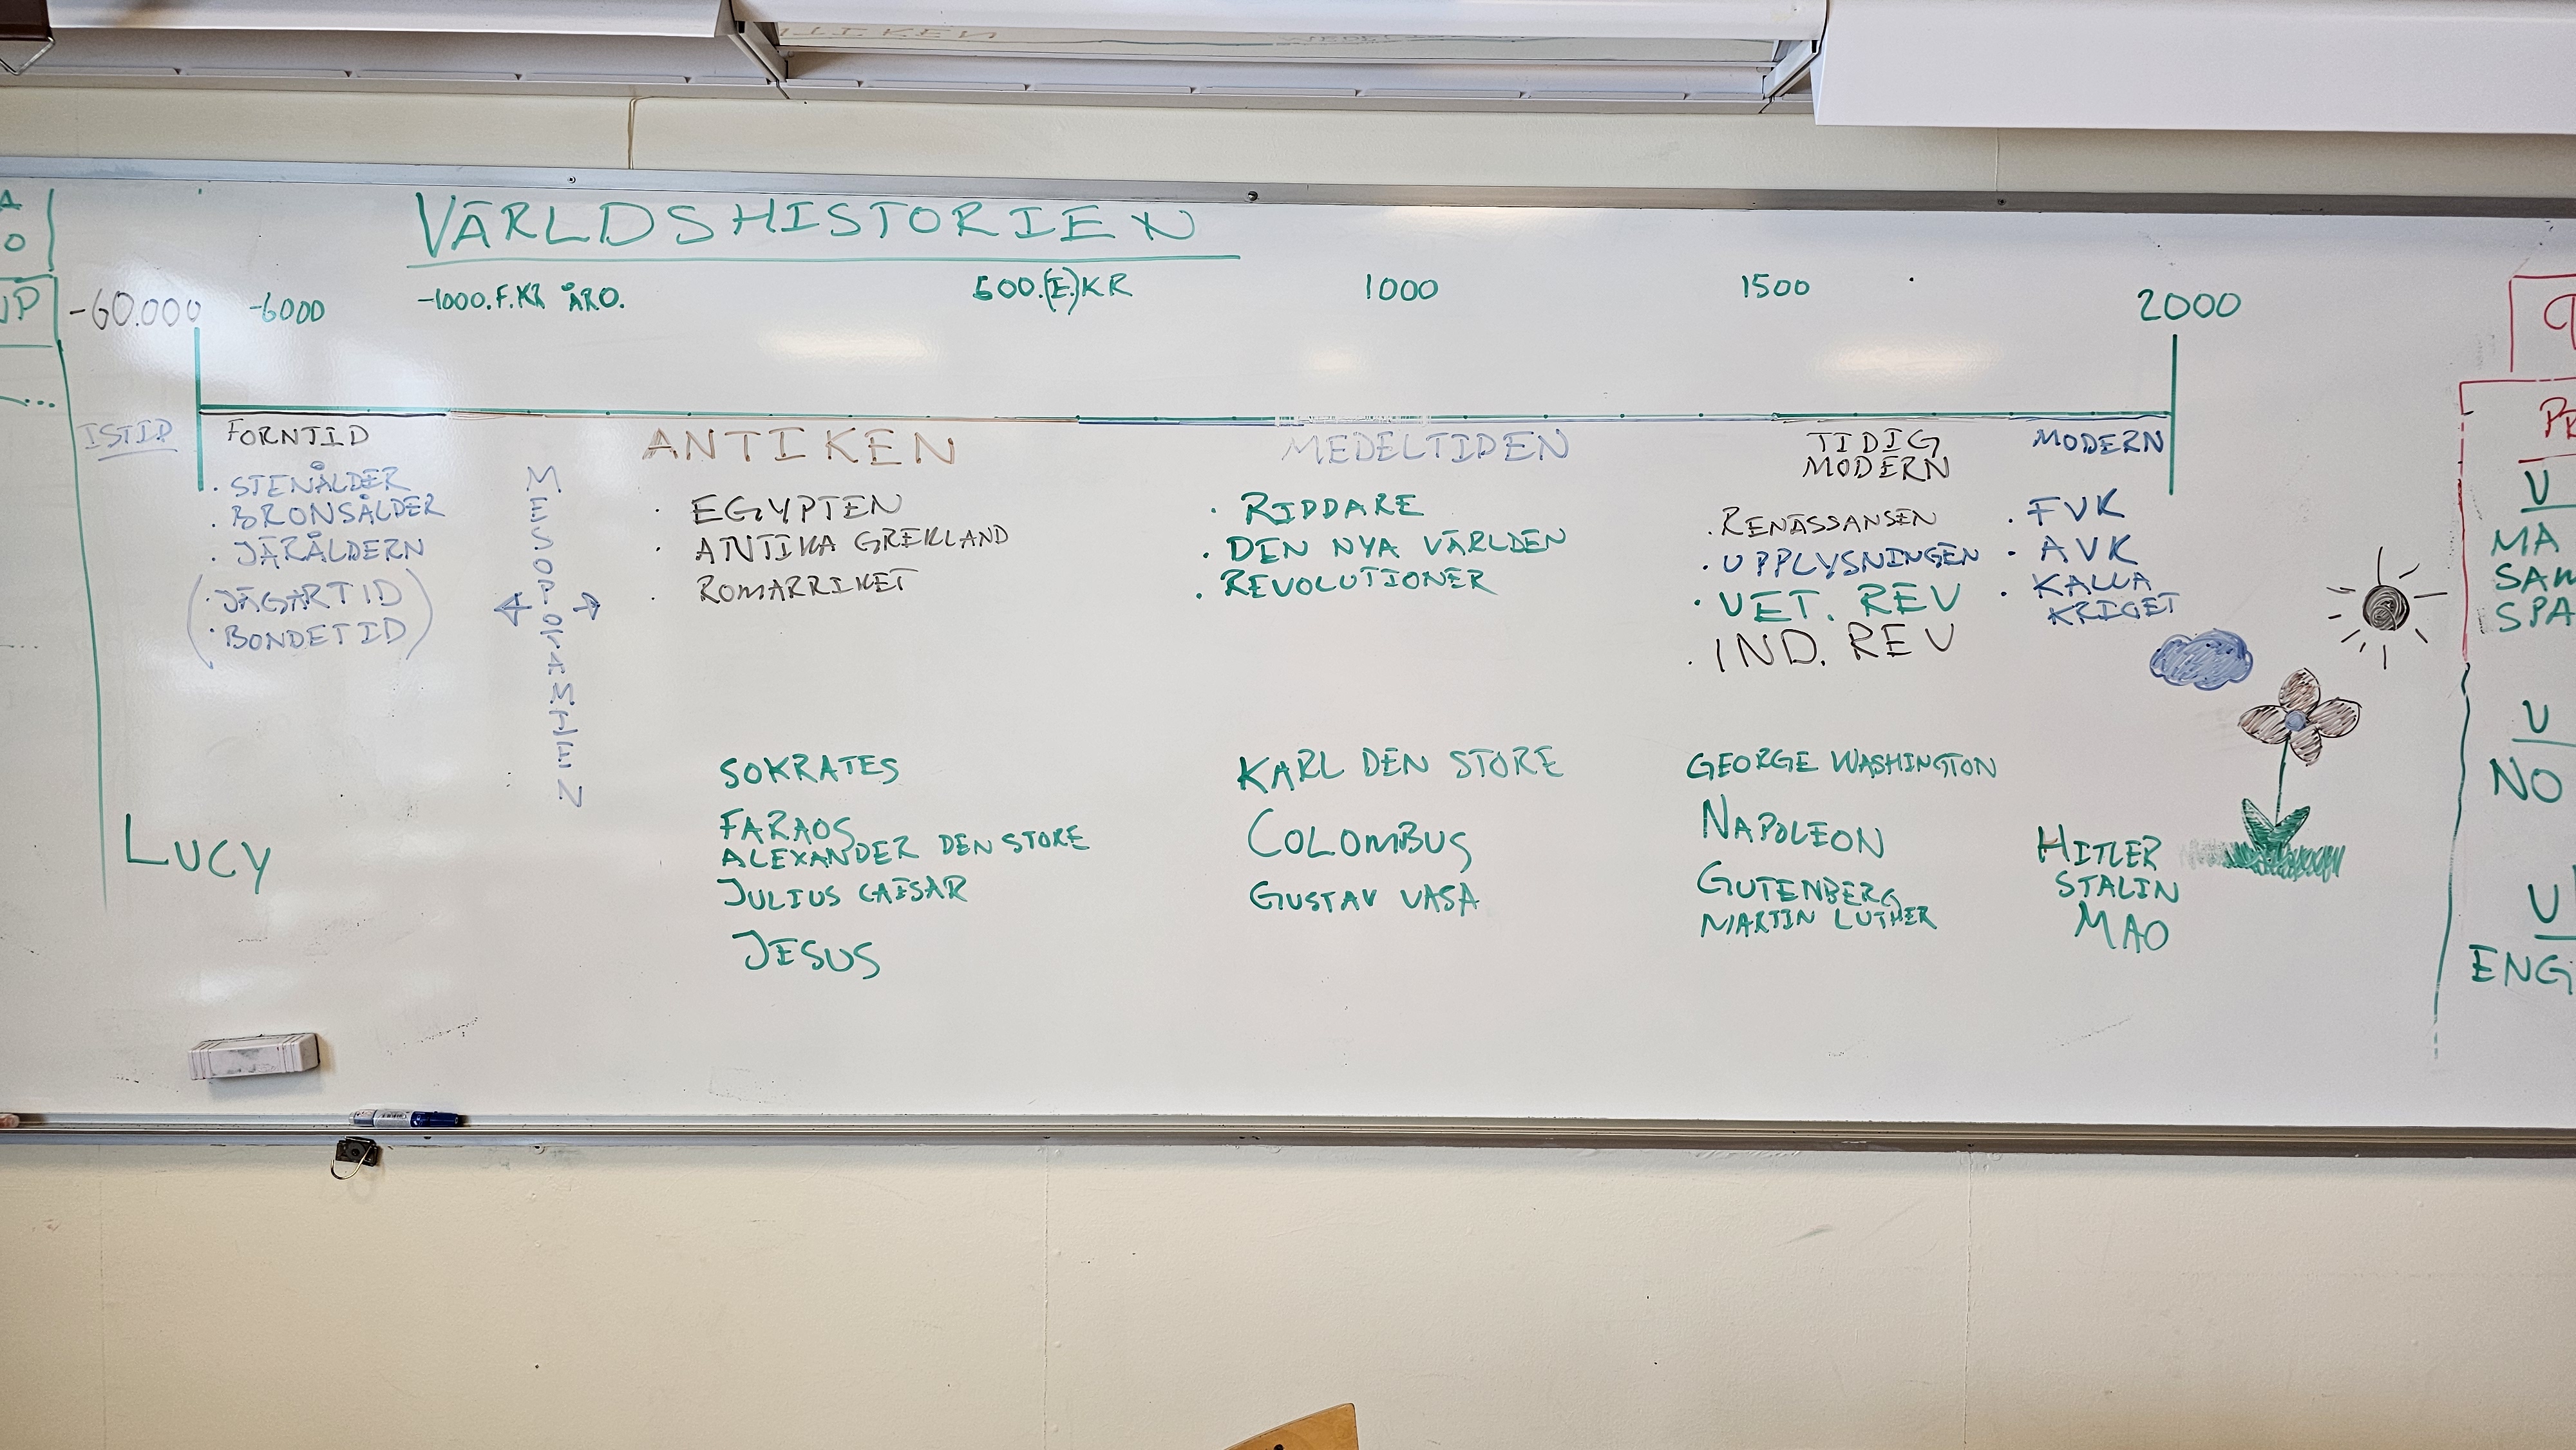 VÄRLDSHISTORIEN
-60.000 -6000 -1000.F.KR ÅR0. 500.(E.)KR 1000 1500 2000
ISTID
FORNTID
· STENÅLDER
· BRONSÅLDER
· JÄRÅLDERN
(· JÄGARTID
· BONDETID)
MESOPOTAMIEN
ANTIKEN
· EGYPTEN
· ANTIKA GREKLAND
· ROMARRIKET
MEDELTIDEN
· RIDDARE
· DEN NYA VÄRLDEN
· REVOLUTIONER
TIDIG
MODERN
· RENÄSSANSEN
· UPPLYSNINGEN
· VET. REV
· IND. REV
MODERN
· FVK
· AVK
· KALLA
KRIGET
LUCY
SOKRATES
FARAOS
ALEXANDER DEN STORE
JULIUS CAESAR
JESUS
KARL DEN STORE
COLOMBUS
GUSTAV VASA
GEORGE WASHINGTON
NAPOLEON
GUTENBERG
MARTIN LUTHER
HITLER
STALIN
MAO
V
MA
SPA
V
NO
V
ENG